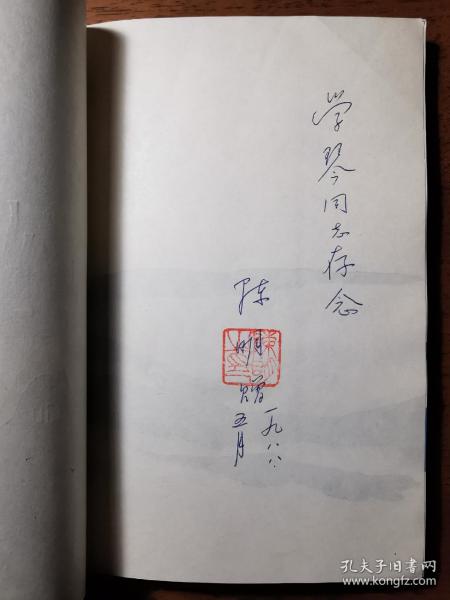 学琴同志存念
陈明赠
一九八八.
五月
孔夫子旧书网
www.kongfz.com